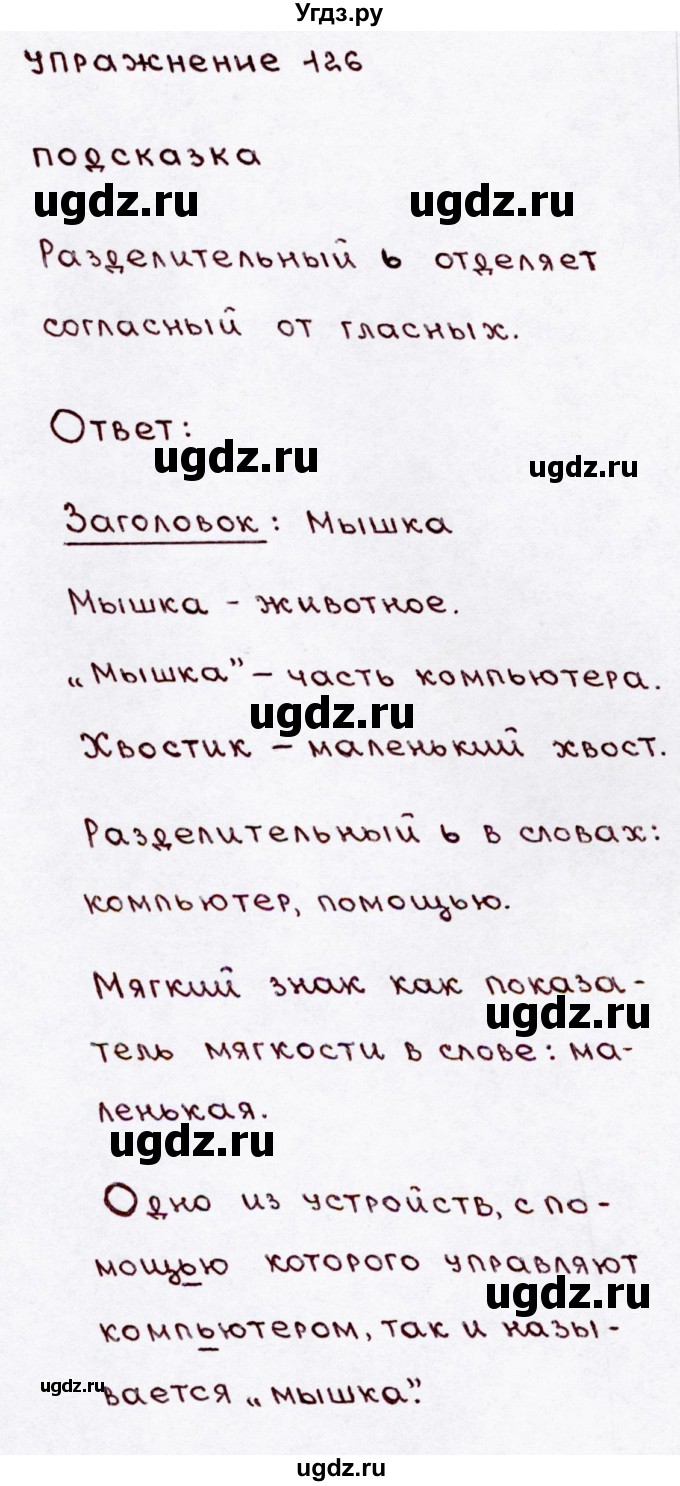 Угдз.ру
упражнение 126
подсказка
ugdz.ru ugdz.ru
Разделительный ь отделяет
согласный от гласных.
Ответ:
ugdz.ru ugdz.ru
Заголовок: Мышка
Мышка - животное.
„Мышка” - часть компьютера.
ugdz.ru
Хвостик - маленький хвост.
Разделительный ь в словах:
компьютер, помощью.
Мягкий знак как показа-
ugdz.ru
тель мягкости в слове: ма-
ленькая.
ugdz.ru
Одно из устройств, с по-
мощью которого управляют
ugdz.ru
компьютером, так и назы-
ugdz.ru
вается „мышка”.
ugdz.ru